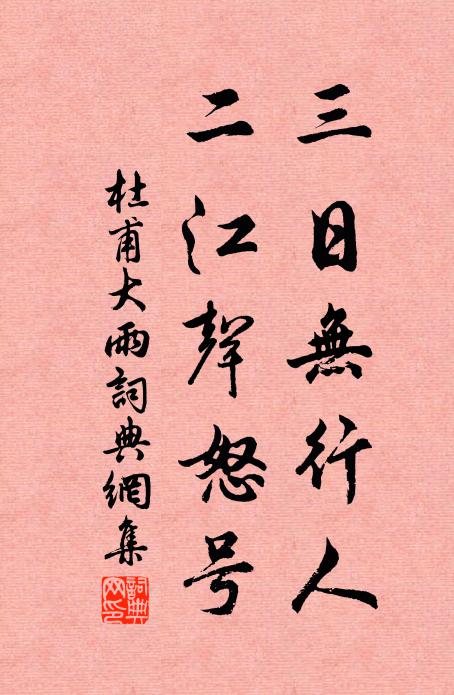 三日無行人
二江聲怒号
杜甫大雨詞典網集
詞典網印